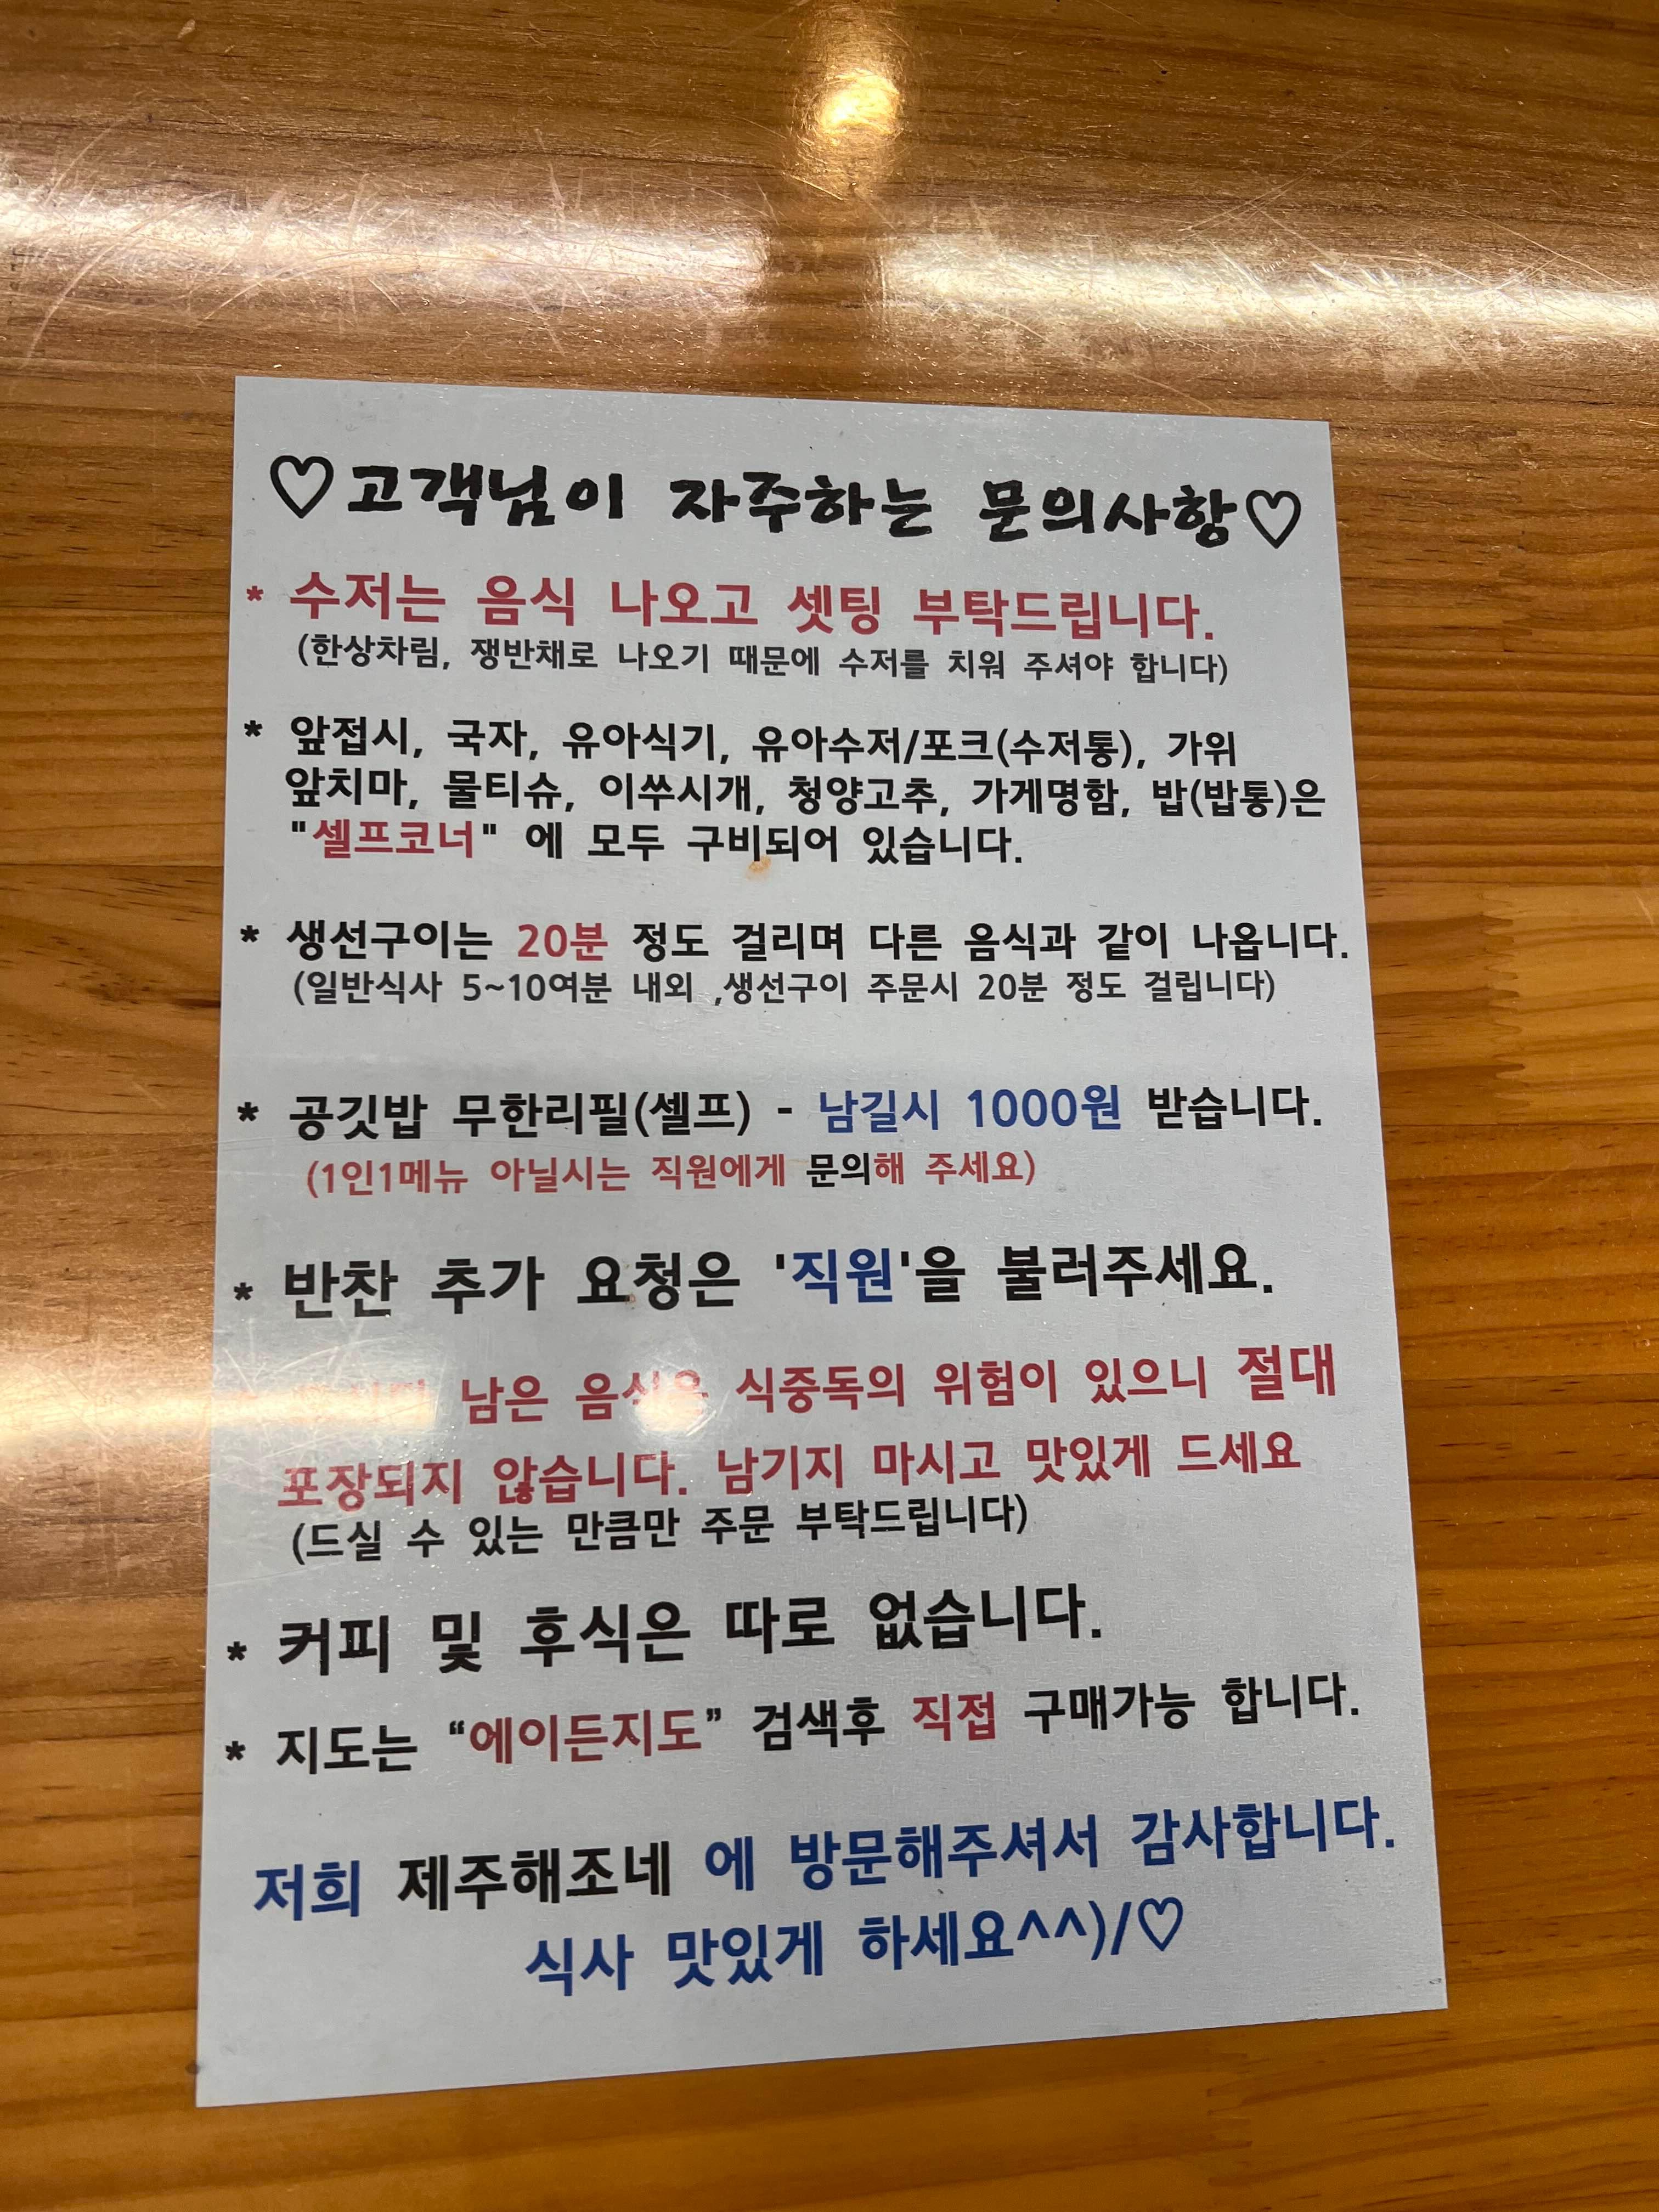 ♡고객님이 자주하는 문의사항♡
* 수저는 음식 나오고 셋팅 부탁드립니다.
(한상차림, 쟁반채로 나오기 때문에 수저를 치워 주셔야 합니다)
* 앞접시, 국자, 유아식기, 유아수저/포크(수저통), 가위
앞치마, 물티슈, 이쑤시개, 청양고추, 가게명함, 밥(밥통)은
"셀프코너" 에 모두 구비되어 있습니다.
* 생선구이는 20분 정도 걸리며 다른 음식과 같이 나옵니다.
(일반식사 5~10여분 내외 ,생선구이 주문시 20분 정도 걸립니다)
* 공깃밥 무한리필(셀프) - 남길시 1000원 받습니다.
(1인1메뉴 아닐시는 직원에게 문의해 주세요)
* 반찬 추가 요청은 '직원'을 불러주세요.
남은 음식은 식중독의 위험이 있으니 절대
포장되지 않습니다. 남기지 마시고 맛있게 드세요
(드실 수 있는 만큼만 주문 부탁드립니다)
* 커피 및 후식은 따로 없습니다.
* 지도는 “에이든지도” 검색후 직접 구매가능 합니다.
저희 제주해조네 에 방문해주셔서 감사합니다.
식사 맛있게 하세요^^)/♡